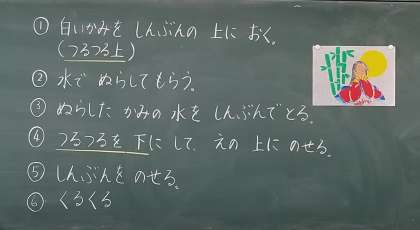 ① 白いかみを しんぶんの 上に おく。
(つるつる上)
② 水で ぬらしてもらう。
③ ぬらした かみの 水を しんぶんでとる。
④ つるつるを 下に して、えの 上に のせる。
⑤ しんぶんを のせる。
⑥ くるくる